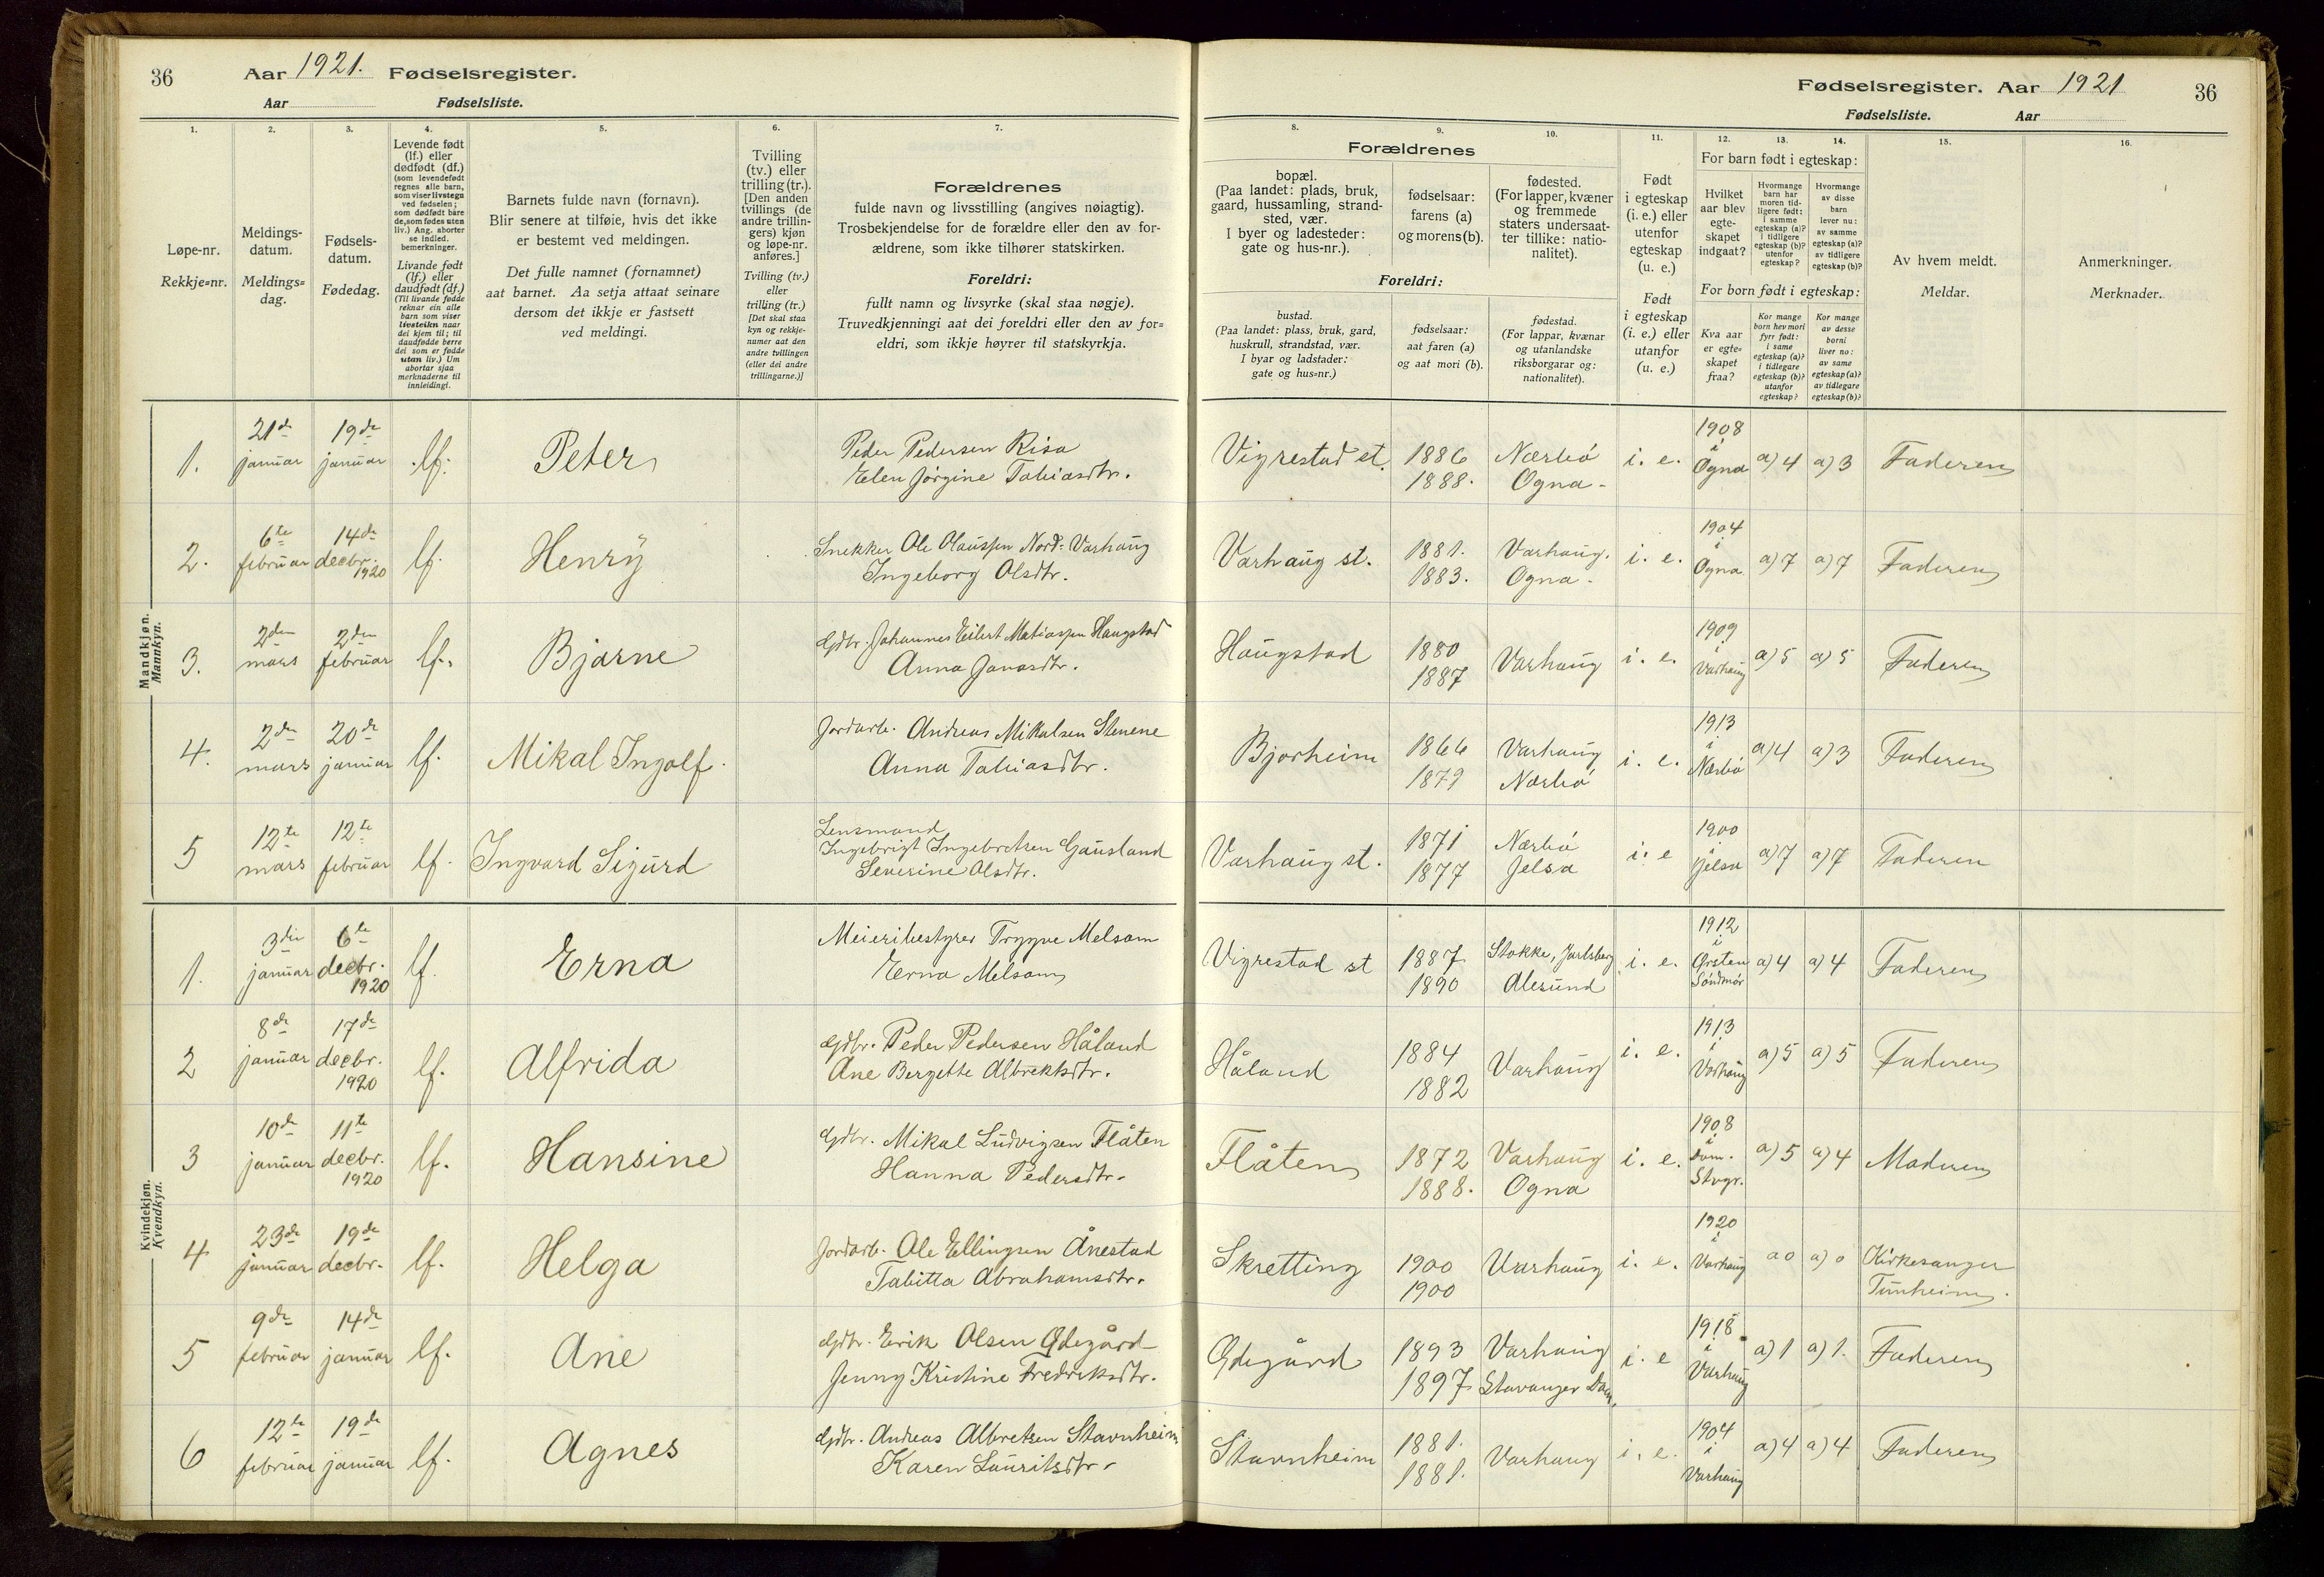 36 Aar 1921. Fødselsregister.
Aar Fødselsliste.
Fødselsregister. Aar 1921 36
Fødselsliste. Aar
1. 2. 3. 4. 5. 6. 7.
8. 9. 10. 11. 12. 13. 14. 15. 16.
Løpe-nr.
Rekkje=nr.
Meldings-
datum.
Meldings=
dag.
Fødsels-
datum.
Fødedag.
Levende født
(lf.) eller
dødfødt (df.)
(som levendefødt
regnes alle barn,
som viser livstegn
ved fødselen;
som dødfødt bare
de, som fødes uten
liv.) Ang. aborter
se indled.
bemerkninger.
Livande født
(lf.) eller
daudfødt (df.)
(Til livande fødde
reknar ein alle
barn som viser
livsteikn naar
dei kjem til; til
daudfødde berre
dei som er fødde
utan liv.) Um
abortar sjaa
merknaderne til
innleidingi.
Barnets fulde navn (fornavn).
Blir senere at tilføie, hvis det ikke
er bestemt ved meldingen.
Det fulle namnet (fornamnet)
aat barnet. Aa setja attaat seinare
dersom det ikkje er fastsett
ved meldingi.
Tvilling
(tv.) eller
trilling (tr.).
[Den anden
tvillings (de
andre trillin-
gers) kjøn
og løpe-nr.
anføres.]
Tvilling (tv.)
eller
trilling (tr.)
[Det skal staa
kyn og rekkje-
numer aat den
andre tvillingen
(eller dei andre
trillingarne.)]
Forældrenes
fulde navn og livsstilling (angives nøiagtig).
Trosbekjendelse for de forældre eller den av for-
ældrene, som ikke tilhører statskirken.
Foreldri:
fullt namn og livsyrke (skal staa nøgje).
Truvedkjenningi aat dei foreldri eller den av for=
eldri, som ikkje høyrer til statskyrkja.
Forældrenes
bopæl.
(Paa landet: plads, bruk,
gaard, hussamling, strand-
sted, vær.
I byer og ladesteder:
gate og hus-nr.).
fødselsaar:
farens (a)
og morens (b).
fødested.
(For lapper, kvæner
og fremmede
staters undersaat-
ter tillike: natio-
nalitet).
Foreldri:
bustad.
(Paa landet: plass, bruk, gard,
huskrull, strandstad, vær.
I byar og ladstader:
gate og hus=nr.)
fødselsaar:
aat faren (a)
og aat mori (b).
fødestad.
(For lappar, kvænar
og utanlandske
riksborgarar og:
nationalitet).
Født
i egteskap
(i. e.) eller
utenfor
egteskap
(u. e.)
Født
i egteskap
(i. e.) eller
utanfor
(u. e.)
For barn født i egteskap:
Hvilket
aar blev
egte-
skapet
indgaat?
Hvormange
barn har
moren tid-
ligere født:
i samme
egteskap (a)?
i tidligere
egteskap (b)?
utenfor
egteskap?
Hvormange
av disse
barn
lever nu:
av samme
egteskap (a)?
av tidligere
egteskap (b)?
For born født i egteskap:
Kva aar
er egte=
skapet
fraa?
Kor mange
born hev mori
fyrr født:
i same
egteskap (a)?
i tidlegare
egteskap (b)?
utanfor
egteskap?
Kor mange
av desse
borni
liver no:
av same
egteskap (a)?
av tidlegare
egteskap (b)?
Av hvem meldt.
Meldar.
Anmerkninger.
Merknader.
Mandkjøn.
Mannkyn.
1. 21de januar 19de januar lf. Peter Peder Pedersen Risa
Elen Jørgine Tobiasdtr.
Vigrestad st. 1886 1888. Nærbø Ogna. i. e. 1908 i Ogna a) 4 a) 3 Faderen
2. 6te februar 14de decbr. 1920 lf. Henry Snekker Ole Olaussen Nord-Varhaug
Ingeborg Olsdtr.
Varhaug st. 1881. 1883. Varhaug. Ogna. i. e. 1904 i Ogna a) 7 a) 7 Faderen
3. 2den mars 2den februar lf. Bjarne Gdbr. Johannes Eilert Matiassen Haugstad
Anna Jonasdtr.
Haugstad 1880 1887 Varhaug i. e. 1909 i Varhaug a) 5 a) 5 Faderen
4. 2den mars 20de januar lf. Mikal Ingolf. Jordarb. Andreas Mikalsen Stenene
Anna Tobiasdtr.
Bjorheim 1866 1879 Varhaug Nærbø i. e. 1913 i Nærbø a) 4 a) 3 Faderen
5 12te mars 12te februar lf. Ingvard Sigurd Lensmand
Ingebrigt Ingebretsen Gausland
Severine Olsdtr.
Varhaug st. 1871 1877 Nærbø Jelsa i. e 1900 i Jelsa a) 7 a) 7 Faderen
Kvindekjøn.
Kvendkyn.
1. 3die januar 6te decbr. 1920 lf. Erna Meieribestyrer Trygve Melsom
Erna Melsom
Vigrestad st 1887 1890 Stokke, Jarlsberg Alesund i. e. 1912 i Ørsten Søndmør a) 4 a) 4 Faderen
2 8de januar 17de decbr. 1920 lf. Alfrida Gdbr. Peder Pedersen Håland
Ane Bergette Albrektsdtr.
Håland 1884 1882 Varhaug i. e. 1913 i Varhaug a) 5 a) 5 Faderen
3 10de januar 11te decbr. 1920 lf. Hansine Gdbr. Mikal Ludvigsen Flåten
Hanna Pedersdtr.
Flåten 1872 1888. Varhaug Ogna i. e. 1908 i Dom. Stvgr. a) 5 a) 4 Moderen
4 23de januar 19de decbr. lf. Helga Jordarb. Ole Ellingsen Ånestad
Tabitta Abrahamsdtr.
Skretting 1900 1900 Varhaug i. e. 1920 i Varhaug a 0 a) 0 Kirkesanger
Tunheim.
5 9de februar 14de januar lf. Ane Gdbr. Erik Olsen Ødegård
Jenny Kristine Fredriksdtr.
Ødegård 1893 1897 Varhaug Stavanger Dom. i. e 1918 i Varhaug a) 1 a) 1. Faderen
6 12te februar 19de januar lf. Agnes Gdbr. Andreas Albretsen Stavnheim
Karen Lauritsdtr.
Stavnheim 1881. 1881. Varhaug i. e. 1904 i Varhaug a) 4 a) 4 Faderen